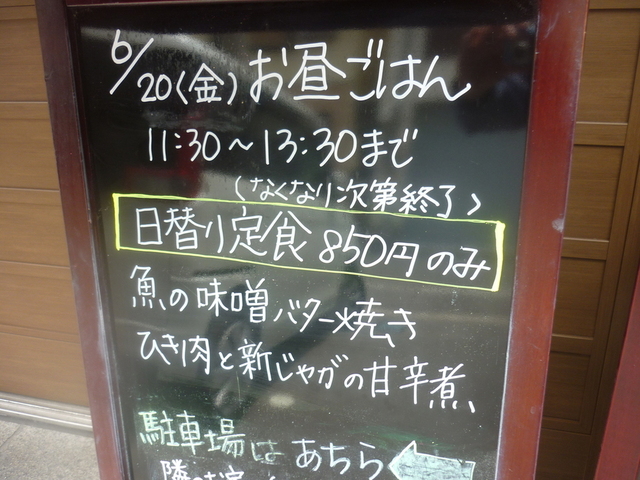 6/20(金)お昼ごはん
11:30〜13:30まで
(なくなり次第終了)
日替り定食 850円のみ
魚の味噌バター焼き
ひき肉と新じゃがの甘辛煮、
駐車場はあちら
隣の